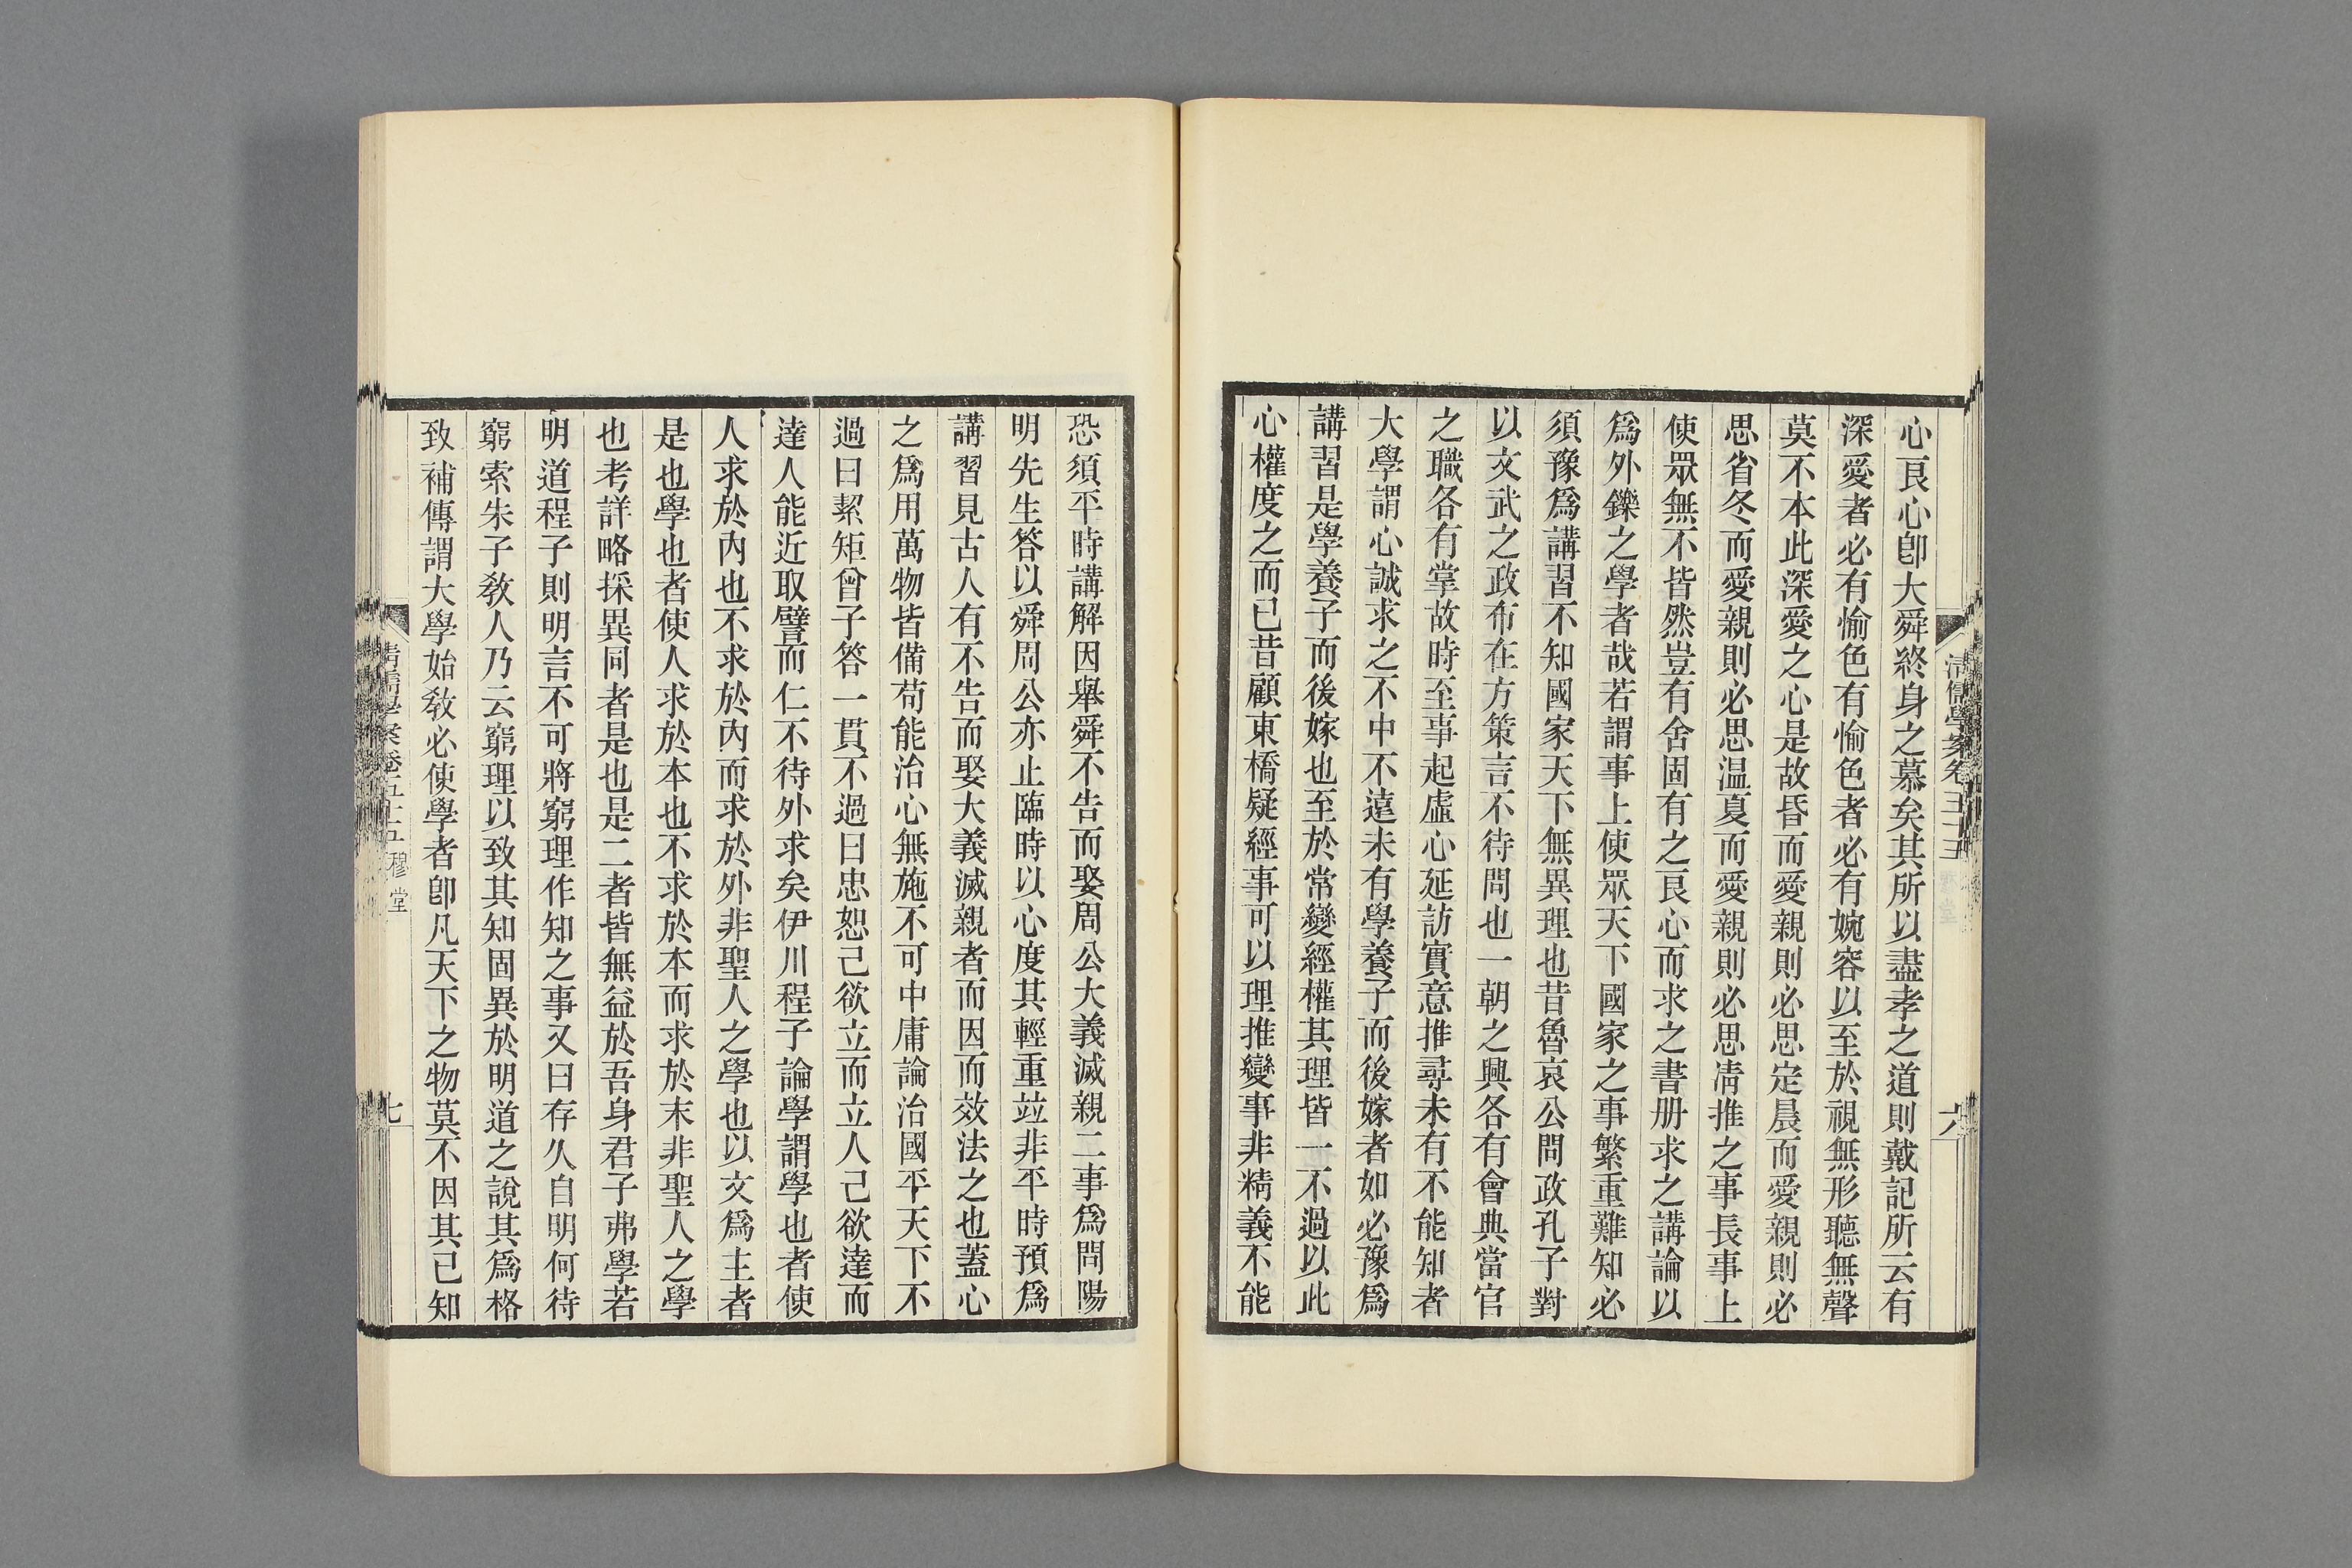 心良心卽大舜終身之慕矣其所以盡孝之道則戴記所云有
深愛者必有愉色有愉色者必有婉容以至於視無形聽無聲
莫不本此深愛之心是故昏而愛親則必思定晨而愛親則必
思省冬而愛親則必思温夏而愛親則必思凊推之事長事上
使眾無不皆然豈有舍固有之良心而求之書册求之講論以
爲外鑠之學者哉若謂事上使眾天下國家之事繁重難知必
須豫爲講習不知國家天下無異理也昔魯哀公問政孔子對
以文武之政布在方策言不待問也一朝之興各有會典當官
之職各有掌故時至事起虛心延訪實意推尋未有不能知者
大學謂心誠求之不中不遠未有學養子而後嫁者如必豫爲
講習是學養子而後嫁也至於常變經權其理皆一不過以此
心權度之而已昔顧東橋疑經事可以理推變事非精義不能
清儒學案卷五十五
六
恐須平時講解因舉舜不告而娶周公大義滅親二事爲問陽
明先生答以舜周公亦止臨時以心度其輕重竝非平時預爲
講習見古人有不告而娶大義滅親者而因而效法之也蓋心
之爲用萬物皆備苟能治心無施不可中庸論治國平天下不
過曰絜矩曾子答一貫不過曰忠恕己欲立而立人己欲達而
達人能近取譬而仁不待外求矣伊川程子論學謂學也者使
人求於內也不求於內而求於外非聖人之學也以文爲主者
是也學也者使人求於本也不求於本而求於末非聖人之學
也考詳略採異同者是也是二者皆無益於吾身君子弗學若
明道程子則明言不可將窮理作知之事又曰存久自明何待
窮索朱子敎人乃云窮理以致其知固異於明道之說其爲格
致補傳謂大學始敎必使學者卽凡天下之物莫不因其已知
清儒學案卷五十五 穆堂
七